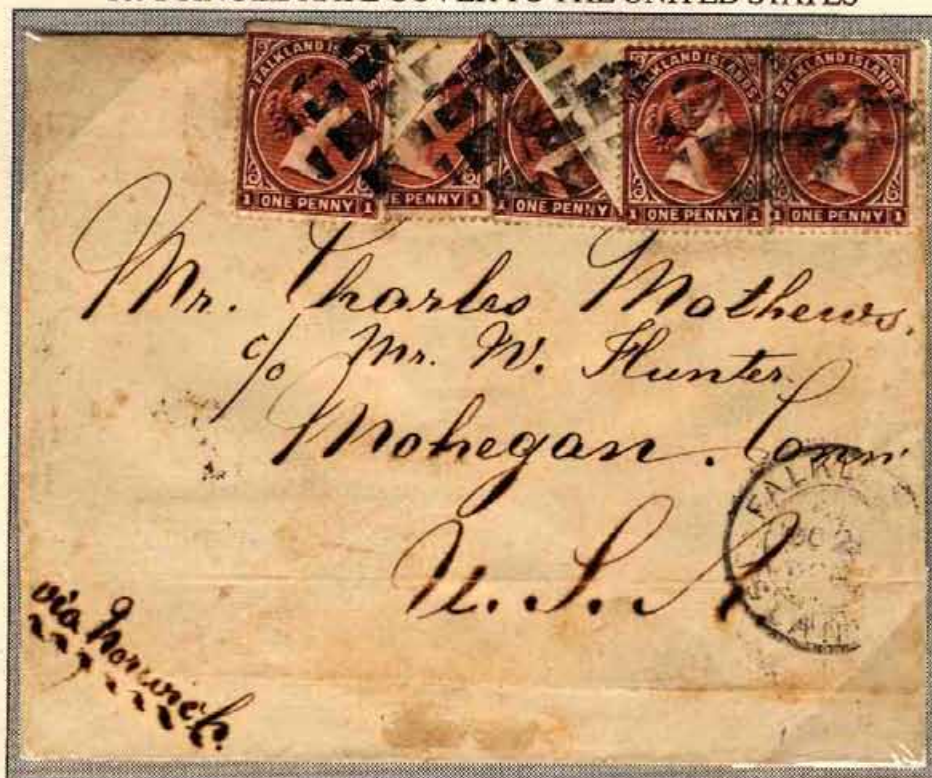 COVER TO THE UNITED STATES
FALKLAND ISLANDS
1 ONE PENNY 1
ONE PENNY 1
1 ONE PENNY
FALKLAND ISLANDS
1 ONE PENNY 1
FALKLAND ISLANDS
1 ONE PENNY 1
Mr. Charles Mathews.
c/o Mr. W. Hunter.
Mohegan. Conn.
U. S. A.
FALKL
via Norwich.